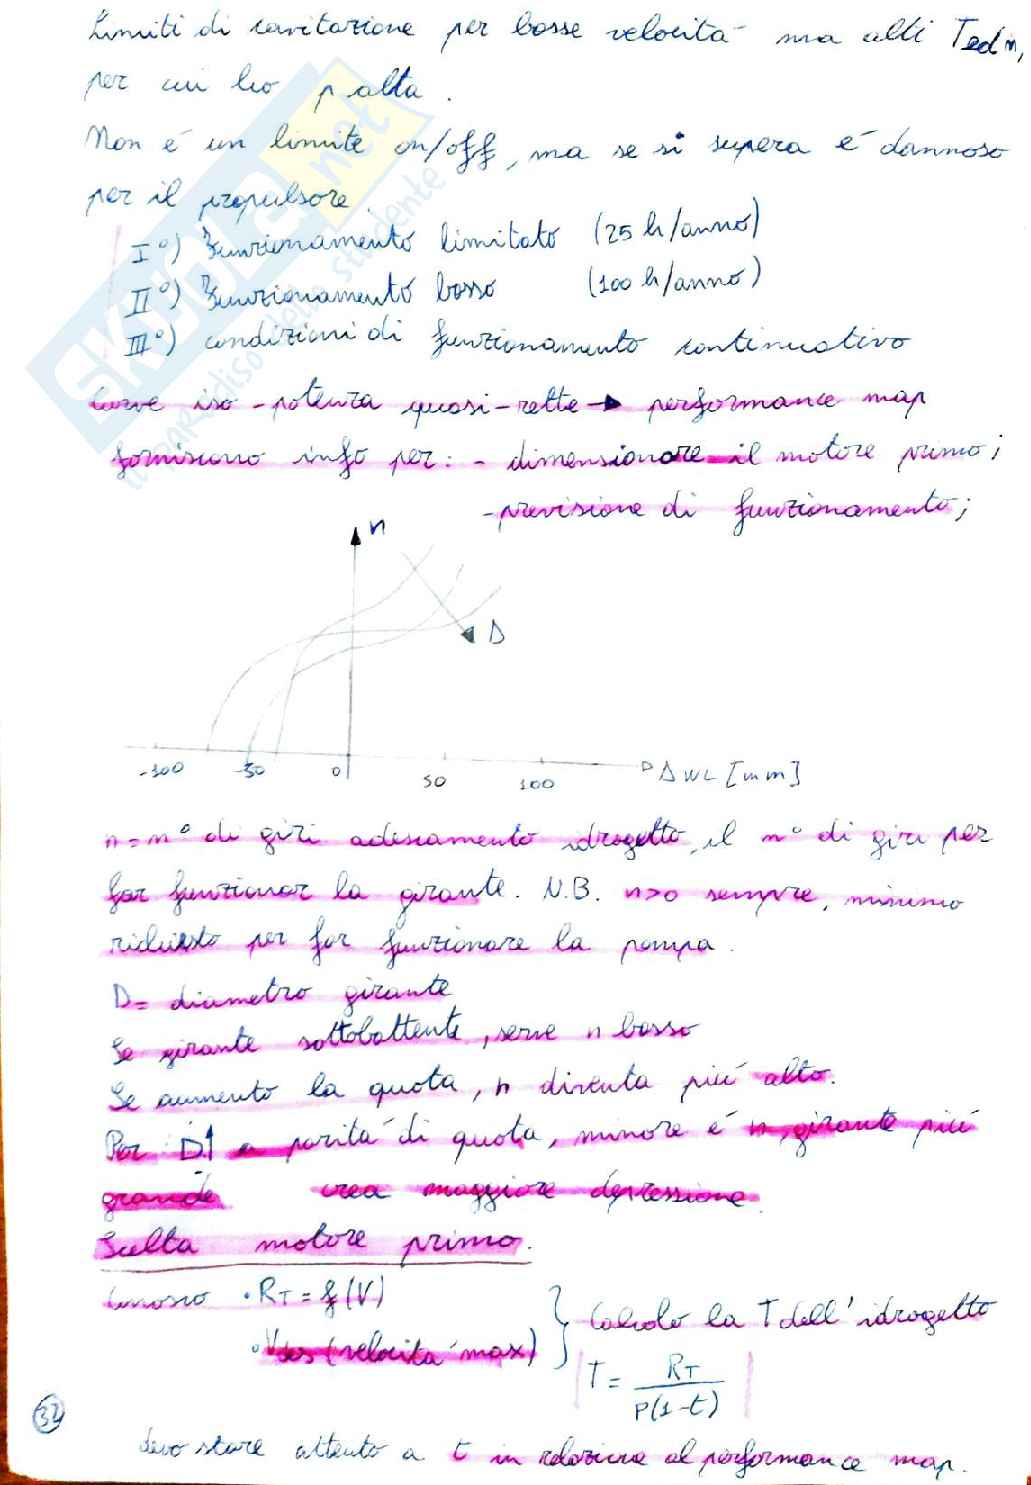 Limiti di cavitazione per basse velocità ma alti T ed n,
per cui ho p alta.
Non è un limite on/off, ma se si supera è dannoso
per il propulsore.
I°) Funzionamento limitato (25 h/anno)
II°) Funzionamento basso (100 h/anno)
III°) condizioni di funzionamento continuativo
Curve iso-potenza quasi-rette → performance map
forniscono info per: - dimensionare il motore primo;
- previsione di funzionamento;
n
D
-100 -50 0 50 100 Δ WL [mm]
n = n° di giri adescamento idrogetto, il n° di giri per
far funzionar la girante. N.B. n>0 sempre, minimo
richiesto per far funzionare la pompa.
D = diametro girante
Se girante sottobattente, serve n basso
Se aumento la quota, n diventa più alto.
Per D↑ a parità di quota, minore è n, girante più
grande crea maggiore depressione.
Scelta motore primo.
Conosco • RT = f(V)
• Vdes (velocità max) } Calcolo la T dell'idrogetto
T = RT / P(1-t)
devo stare attento a t in relazione al performance map.
32
SKUOLA.net
il paradiso dello studente